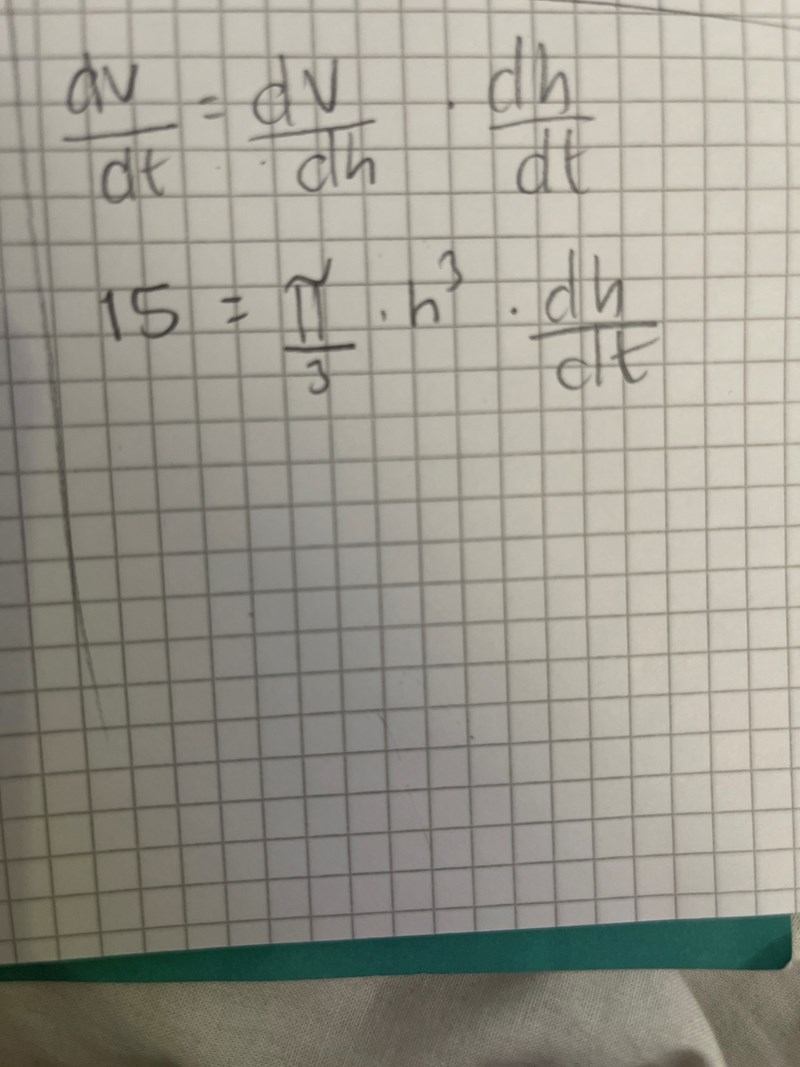 dv/dt = dV/dh · dh/dt
15 = π/3 · h³ · dh/dt